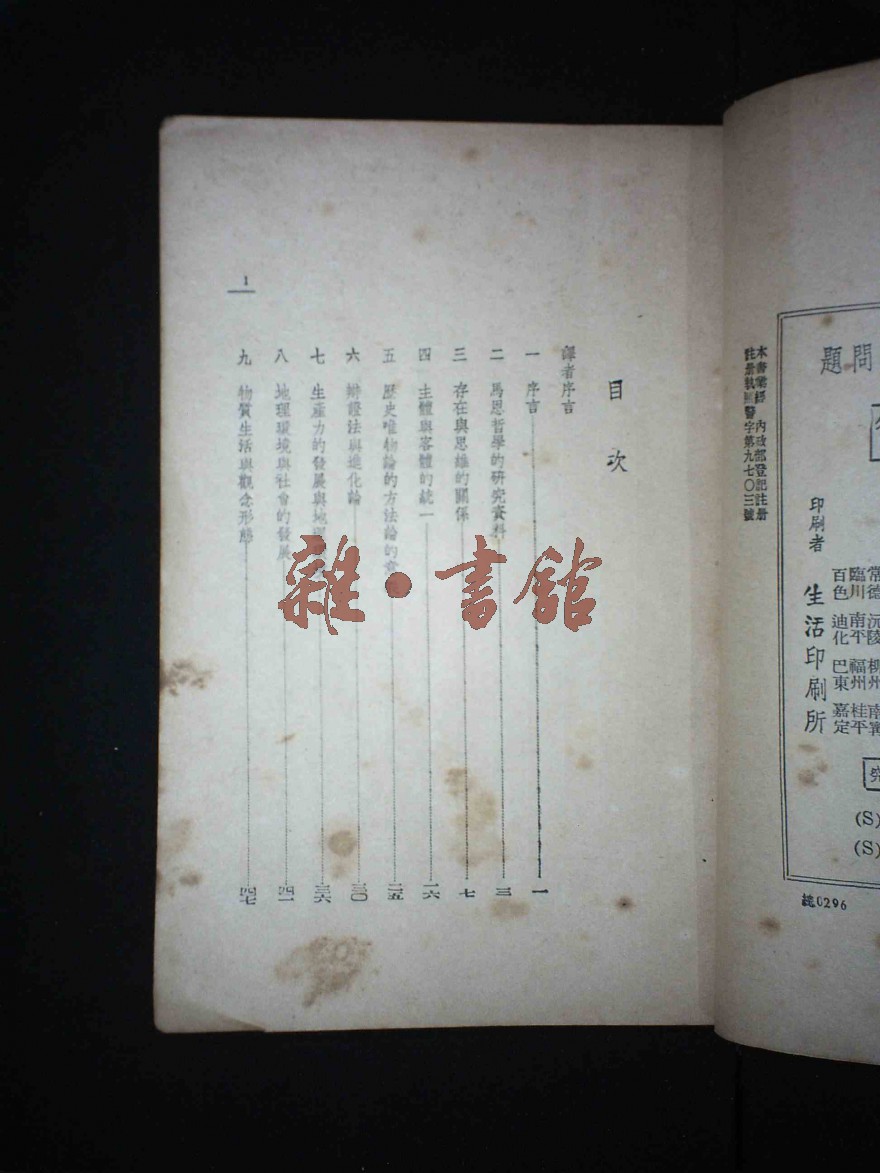 題問
本書業經 內政部登記註册
註册執照警字第九七〇三號
印刷者 生活印刷所
常德 沅陵 柳州 南寧
臨川 南平 福州 桂平
百色 迪化 巴東 嘉定
(S)
(S)
總0296
目次
譯者序言
一 序言 一
二 馬恩哲學的研究資料 三
三 存在與思維的關係 七
四 主體與客體的統一 一六
五 歷史唯物論的方法論的意 二五
六 辯證法與進化論 三〇
七 生產力的發展與地理 三六
八 地理環境與社會的發展 四一
九 物質生活與觀念形態 四七
1
雜·書館